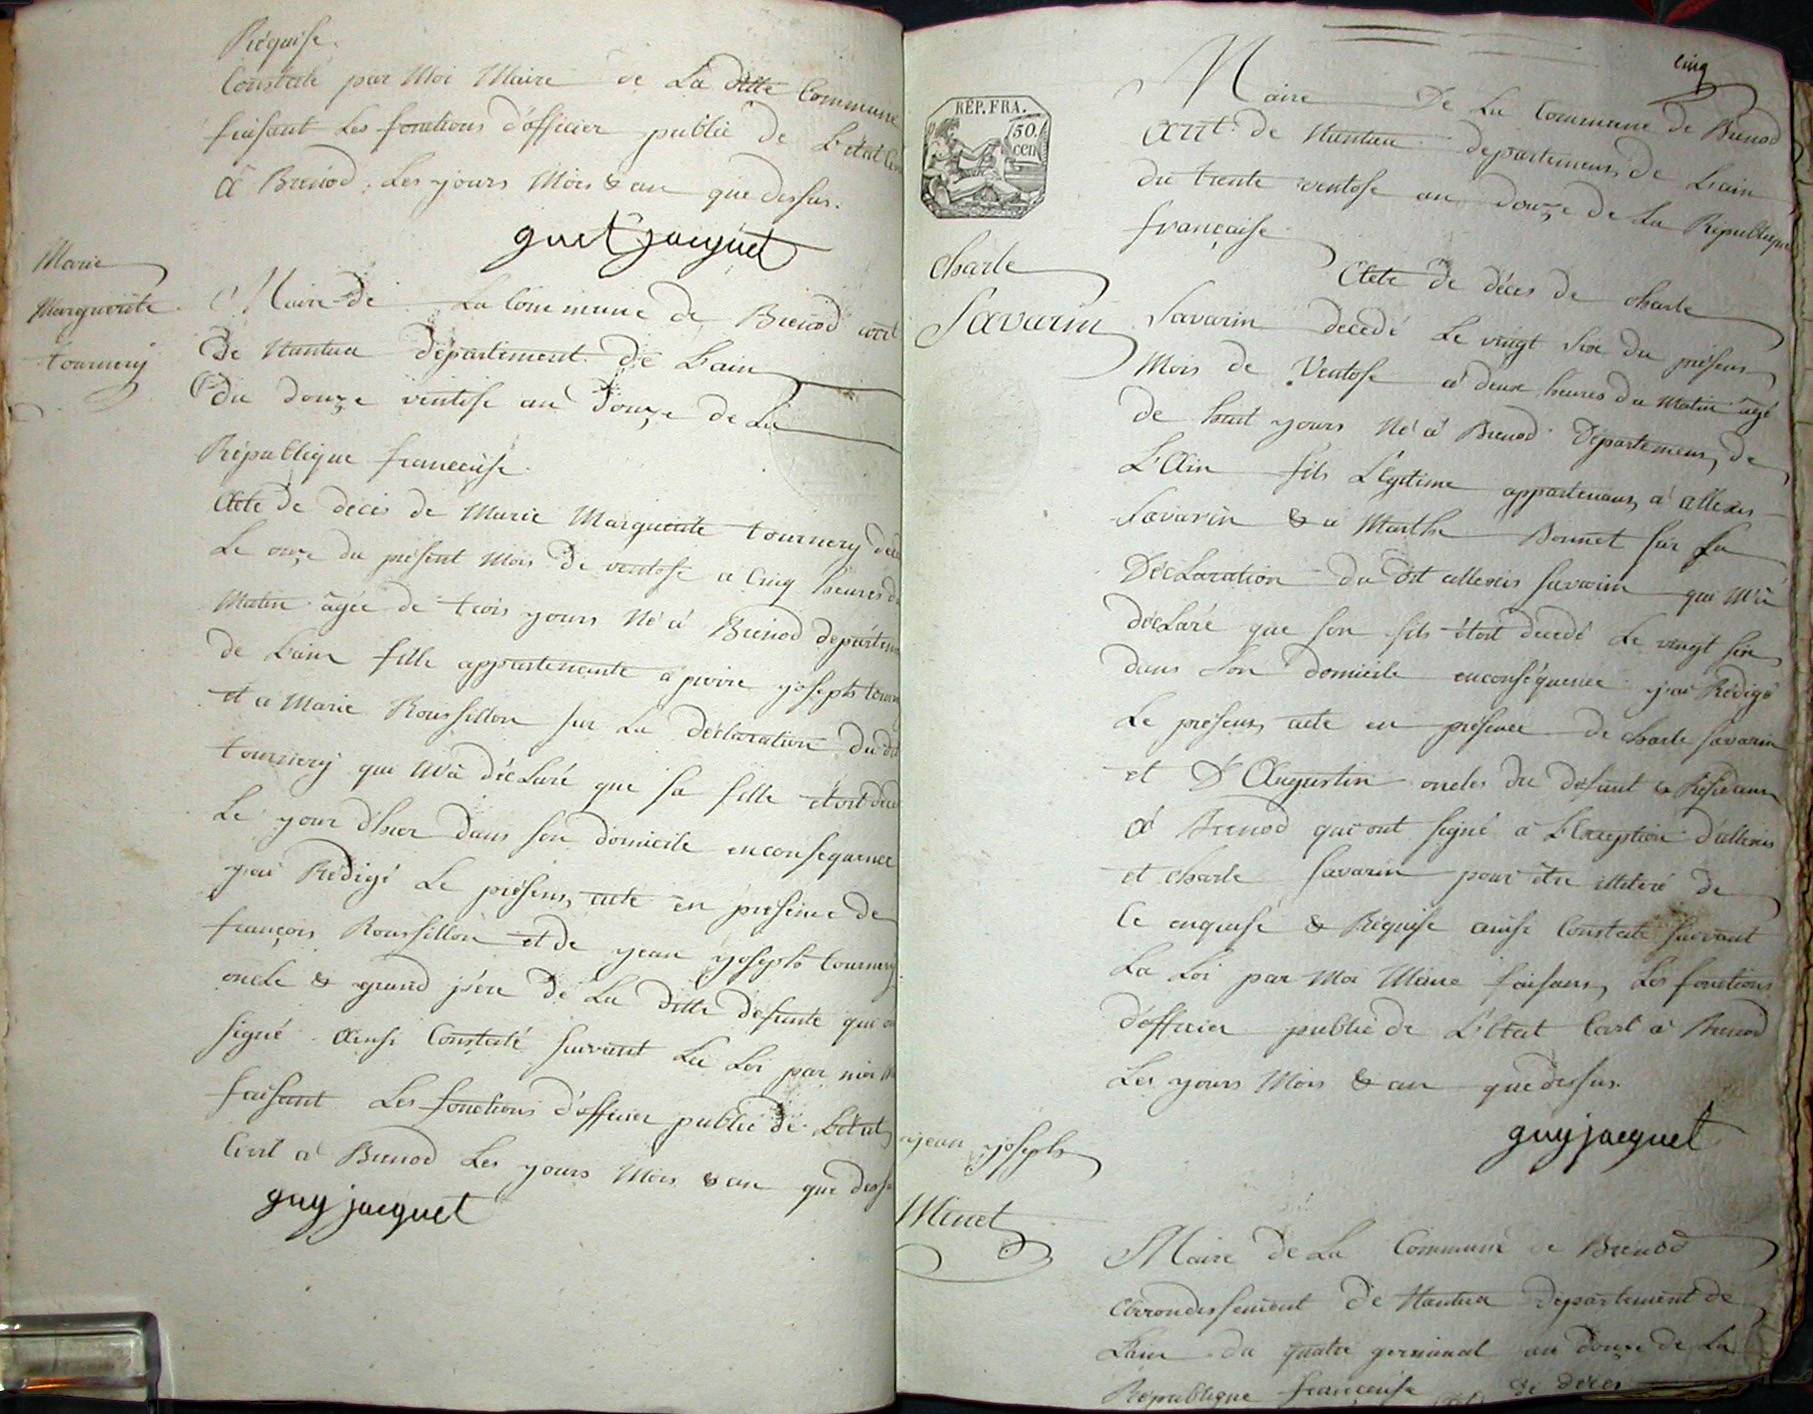 Réquise.
Constaté par Moi Maire de La ditte Commune
faisant Les fonctions d'officier public de L'état Civil
à Brenod, Les yours Mois & an que dessus.
guy jacquet
Marie
Marguerite
tournery
Maire de La Commune de Brenod arrt
De Nantua département de L'ain
Du douze ventose an douze de La
République francaise.
Acte de décès de Marie Marguerite tournery
Le onze du présent Mois de ventose a Cinq heures du
Matin âgée de trois yours Né à Brenod départem
de L'ain fille appartenante a pierre yoseph tournery
et a Marie Roussillon sur La déclaration du dit
tournery qui M'a déclaré que sa fille étoit
Le your d'hier dans son domicile enconsequence
y'ai Rédigé Le présent acte en présence de
françois Roussillon et de yean yoseph tournery
oncle & grand père de La ditte defunte qui ont
signé. Ainsi Constaté suivant La Loi par moi
faisant Les fonctions d'officier public de L'état
Civil à Brenod Les yours Mois & an que dessu
guy jacquet
cinq
RÉP. FRA.
50
cen
Maire De La Commune de Brenod
Arrt. de Nantua département de Lain
du trente ventose an douze de La République
française.
Charle
Savarin
Acte de décès de Charle
Savarin décedé Le vingt six du présent
Mois de Ventose a deux heures du Matin âgé
de huit yours Né à Brenod Département de
L'Ain fils Légitime appartenant a allexis
Savarin & a Marthe Bonnet sur La
Déclaration du dit allexis savarin qui M'a
déclaré que son fils étoit décedé Le vingt six
dans Son domicile enconséquence y'ai Rédigé
Le présent acte en présence de charle savarin
et D'Augustin oncles du defunt & Résidant
à Brenod qui ont signé à L'Exception d'allexis
et charle savarin pour être illiteré de
Ce enquise & Réquise ainsi Constaté suivant
La Loi par Moi Maire faisant Les fonctions
d'officier public de L'Etat Civil à Brenod
Les yours Mois & an que dessus.
guy jacquet
yean yoseph
Minet
Maire de La Commune de Brenod
arrondissement De Nantua département de
Lain du quatre germinal an douze de La
République francaise de décès